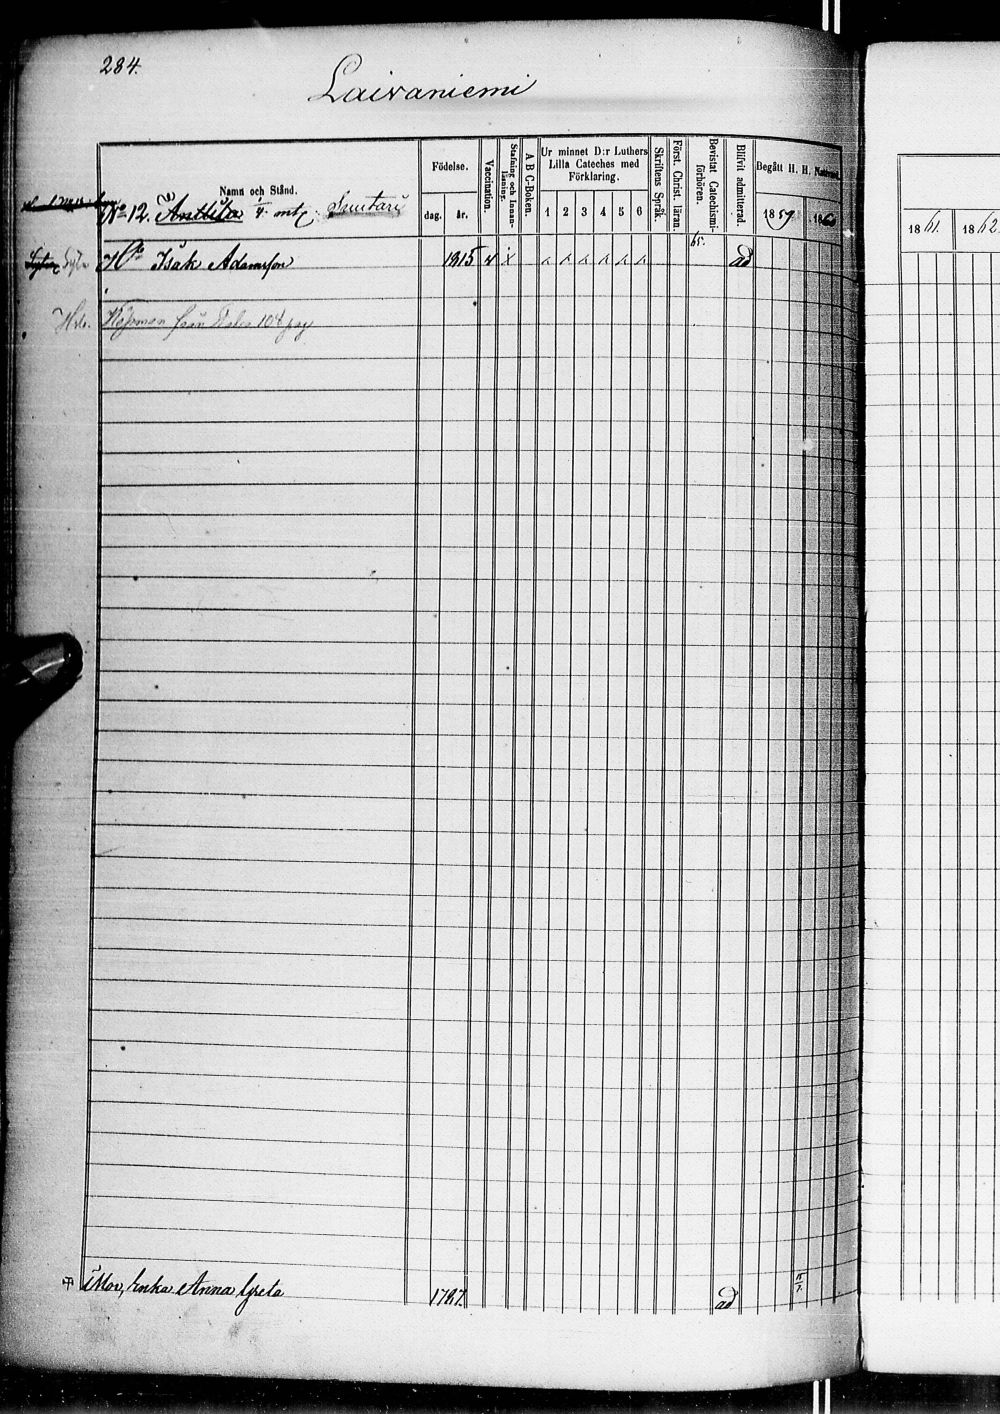 284.
Laivaniemi
Namn och Stånd.
Födelse.
dag. år.
Vaccination.
Stafning och Innanläsning.
A B C-Boken.
Ur minnet D:r Luthers Lilla Cateches med Förklaring.
1 2 3 4 5 6
Skriftens Språk.
Först. Christ. läran.
Bevistat Catechismiförhören.
Blifvit admitterad.
Begått H. H. Nattvard.
1859. 1860
1861. 1862
No 12. Anttila 1/4 mtl
Isak Adamsson 1815 65. ad
från 104 pag
Mor, Enka Anna Greta 1787. ad